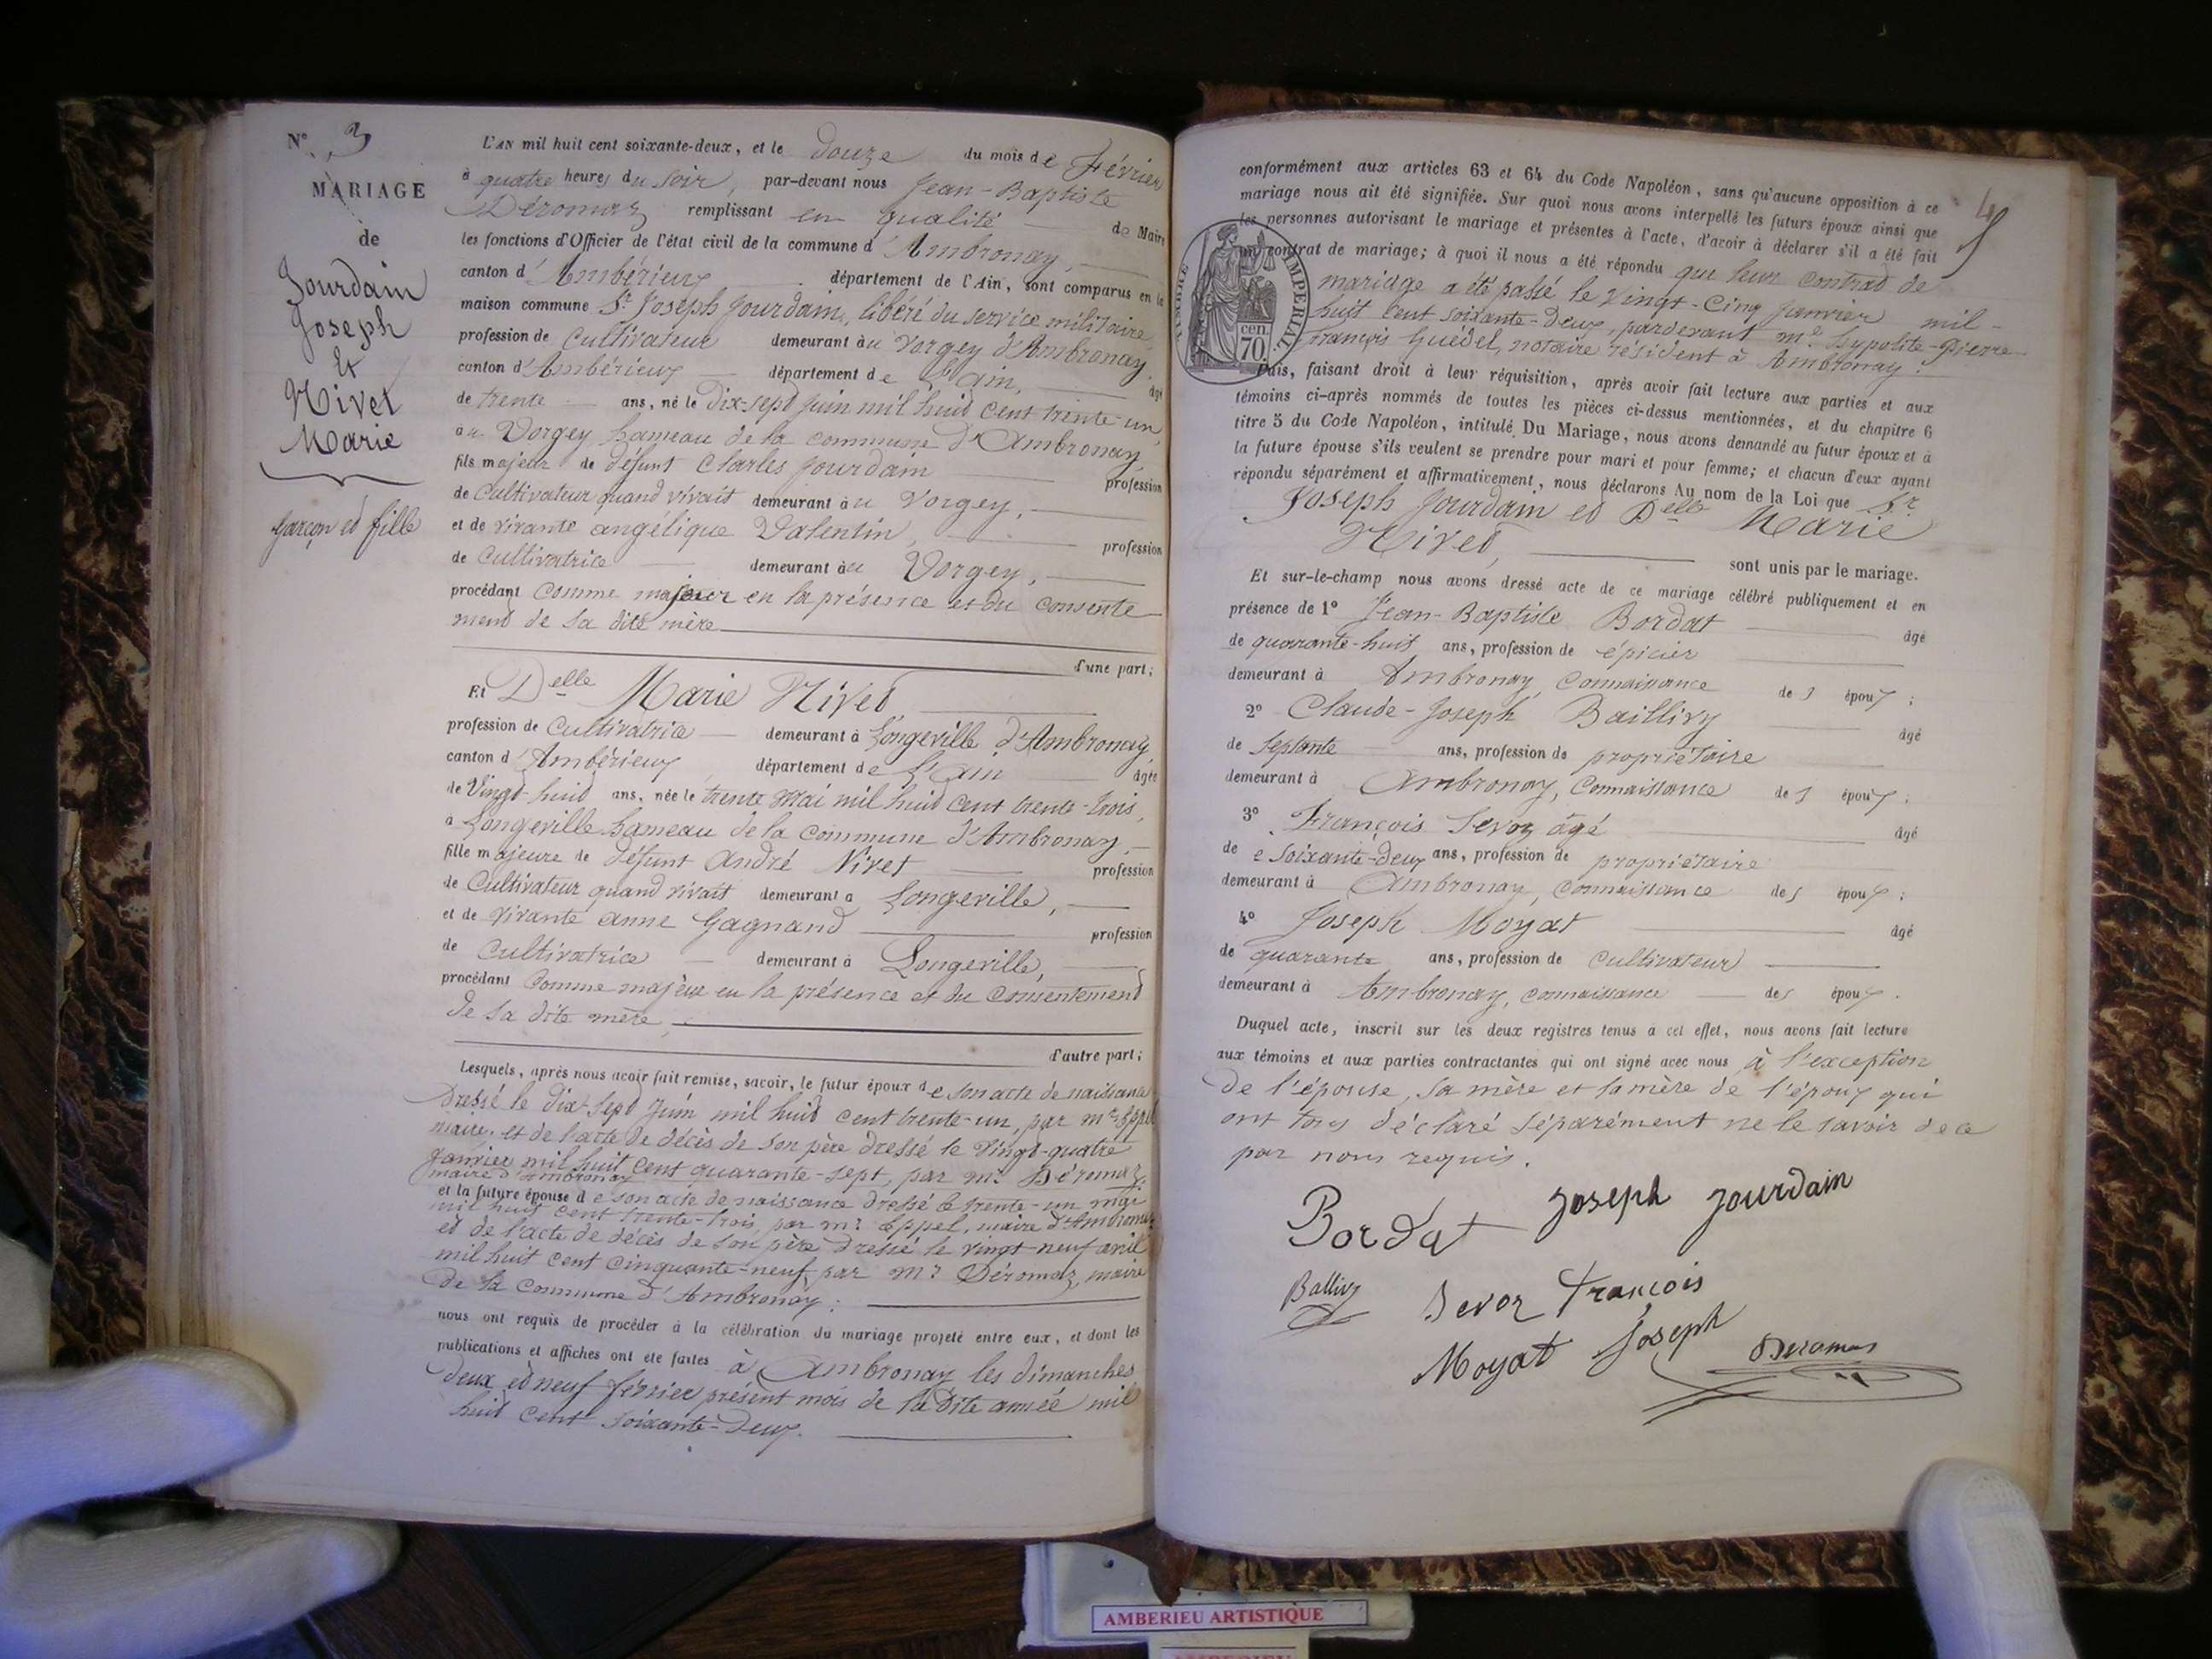 N° 3
MARIAGE
de
Jourdain
Joseph
&
Nivet
Marie
garçon et fille
L'AN mil huit cent soixante-deux, et le douze du mois de Février
à quatre heures du soir, par-devant nous Jean-Baptiste
Déromaz remplissant en qualité de Maire
les fonctions d'Officier de l'état civil de la commune d'Ambronay,
canton d'Ambérieux département de l'Ain, sont comparus en la
maison commune Sr Joseph Jourdain, libéré du service militaire,
profession de Cultivateur demeurant au Vorgey d'Ambronay
canton d'Ambérieux département de l'ain, âgé
de trente ans, né le Dix-sept juin mil huit cent trente-un,
au Vorgey hameau de la commune d'Ambronay,
fils majeur de défunt Charles Jourdain profession
de Cultivateur quand vivait demeurant au Vorgey,
et de vivante angélique Valentin, profession
de Cultivatrice demeurant au Vorgey,
procédant Comme majeur en la présence et du consente
ment de sa dite mère
d'une part;
Et Delle Marie Nivet
profession de Cultivatrice demeurant à Longeville d'Ambronay,
canton d'Ambérieux département de l'ain âgée
de Vingt-huit ans, née le trente Mai mil huit cent trente-trois,
à Longeville hameau de la commune d'Ambronay,
fille majeure de défunt André Nivet profession
de Cultivateur quand vivait demeurant à Longeville,
et de vivante anne Gagnand profession
de Cultivatrice demeurant à Longeville,
procédant Comme majeur en la présence et du Consentement
de sa dite mère
d'autre part;
Lesquels, après nous avoir fait remise, savoir, le futur époux de son acte de naissance
Dressé le dix-sept juin mil huit cent trente-un, par mr Eppel
maire, et de l'acte de décès de son père dressé le vingt-quatre
janvier mil huit cent quarante-sept, par mr Déromaz
maire d'Ambronay
et la future épouse de son acte de naissance dressé le trente-un mai
mil huit cent trente-trois, par mr Eppel, maire d'Ambronay
et de l'acte de décès de son père dressé le vingt-neuf avril
mil huit cent cinquante-neuf, par mr Déromaz, maire
de la Commune d'Ambronay;
nous ont requis de procéder à la célébration du mariage projeté entre eux, et dont les
publications et affiches ont été faites à Ambronay les dimanches
deux et neuf février présent mois de la dite année mil
huit cent soixante-deux.
4
conformément aux articles 63 et 64 du Code Napoléon, sans qu'aucune opposition à ce
mariage nous ait été signifiée. Sur quoi nous avons interpellé les futurs époux ainsi que
les personnes autorisant le mariage et présentes à l'acte, d'avoir à déclarer s'il a été fait
un contrat de mariage; à quoi il nous a été répondu que leur contrad de
mariage a été passé le vingt-cinq janvier mil
huit cent soixante-deux, pardevant me hypolite-Pierre
françois Guédel, notaire résident à Ambronay.
TIMBRE IMPERIAL.
cen.
70.
Puis, faisant droit à leur réquisition, après avoir fait lecture aux parties et aux
témoins ci-après nommés de toutes les pièces ci-dessus mentionnées, et du chapitre 6
titre 5 du Code Napoléon, intitulé Du Mariage, nous avons demandé au futur époux et à
la future épouse s'ils veulent se prendre pour mari et pour femme; et chacun d'eux ayant
répondu séparément et affirmativement, nous déclarons Au nom de la Loi que Sr
Joseph Jourdain et Delle Marie
Nivet, sont unis par le mariage.
Et sur-le-champ nous avons dressé acte de ce mariage célébré publiquement et en
présence de 1° Jean-Baptiste Bordat âgé
de quarante-huit ans, profession de épicier
demeurant à Ambronay, connaissance des époux;
2° Claude-Joseph Baillivy âgé
de Septante ans, profession de propriétaire
demeurant à Ambronay, Connaissance des époux;
3° François Sevoz âgé âgé
de e soixante-deux ans, profession de propriétaire
demeurant à Ambronay, connaissance des époux;
4° Joseph Moyat âgé
de quarante ans, profession de Cultivateur
demeurant à Ambronay, connaissance des époux.
Duquel acte, inscrit sur les deux registres tenus à cet effet, nous avons fait lecture
aux témoins et aux parties contractantes qui ont signé avec nous à l'exception
de l'épouse, sa mère et la mère de l'époux qui
ont tous déclaré séparément ne le savoir de ce
par nous requis.
Bordat Joseph Jourdain
Ballivy Sevoz François
Moyat Joseph Deromas
AMBERIEU ARTISTIQUE
AMBERIEU